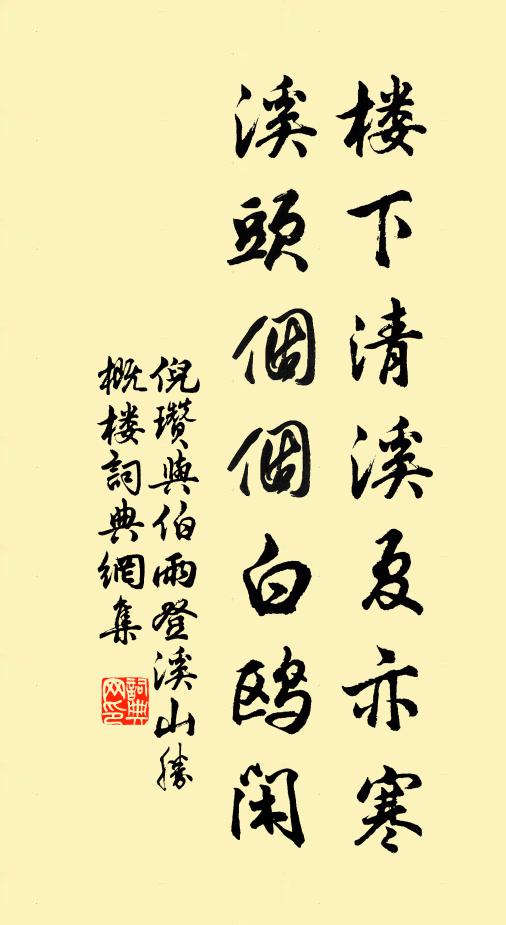 楼下清溪夏亦寒
溪頭個個白鸥闲
倪瓚與伯雨登溪山勝
概楼詞典網集
詞典
网印